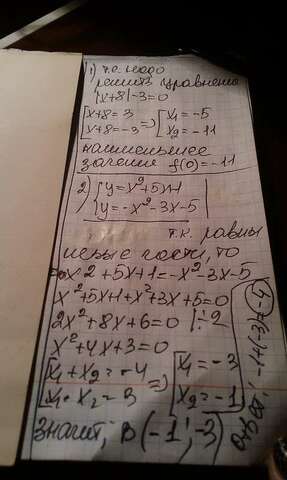 1) т.е. надо
решить уравнение
|x+8|-3=0
[x+8=3 => [x₁=-5
[x+8=-3 [x₂=-11
наименьшее
значение f(0)=-11
2) {y=x²+5x+1
{y=-x²-3x-5
т.к. равны
левые части, то
x²+5x+1=-x²-3x-5
x²+5x+1+x²+3x+5=0
2x²+8x+6=0 |:2
x²+4x+3=0
[x₁+x₂=-4 => [x₁=-3
[x₁·x₂=3 [x₂=-1
значит, B(-1;-3)
ответ: -1+(-3)=-4